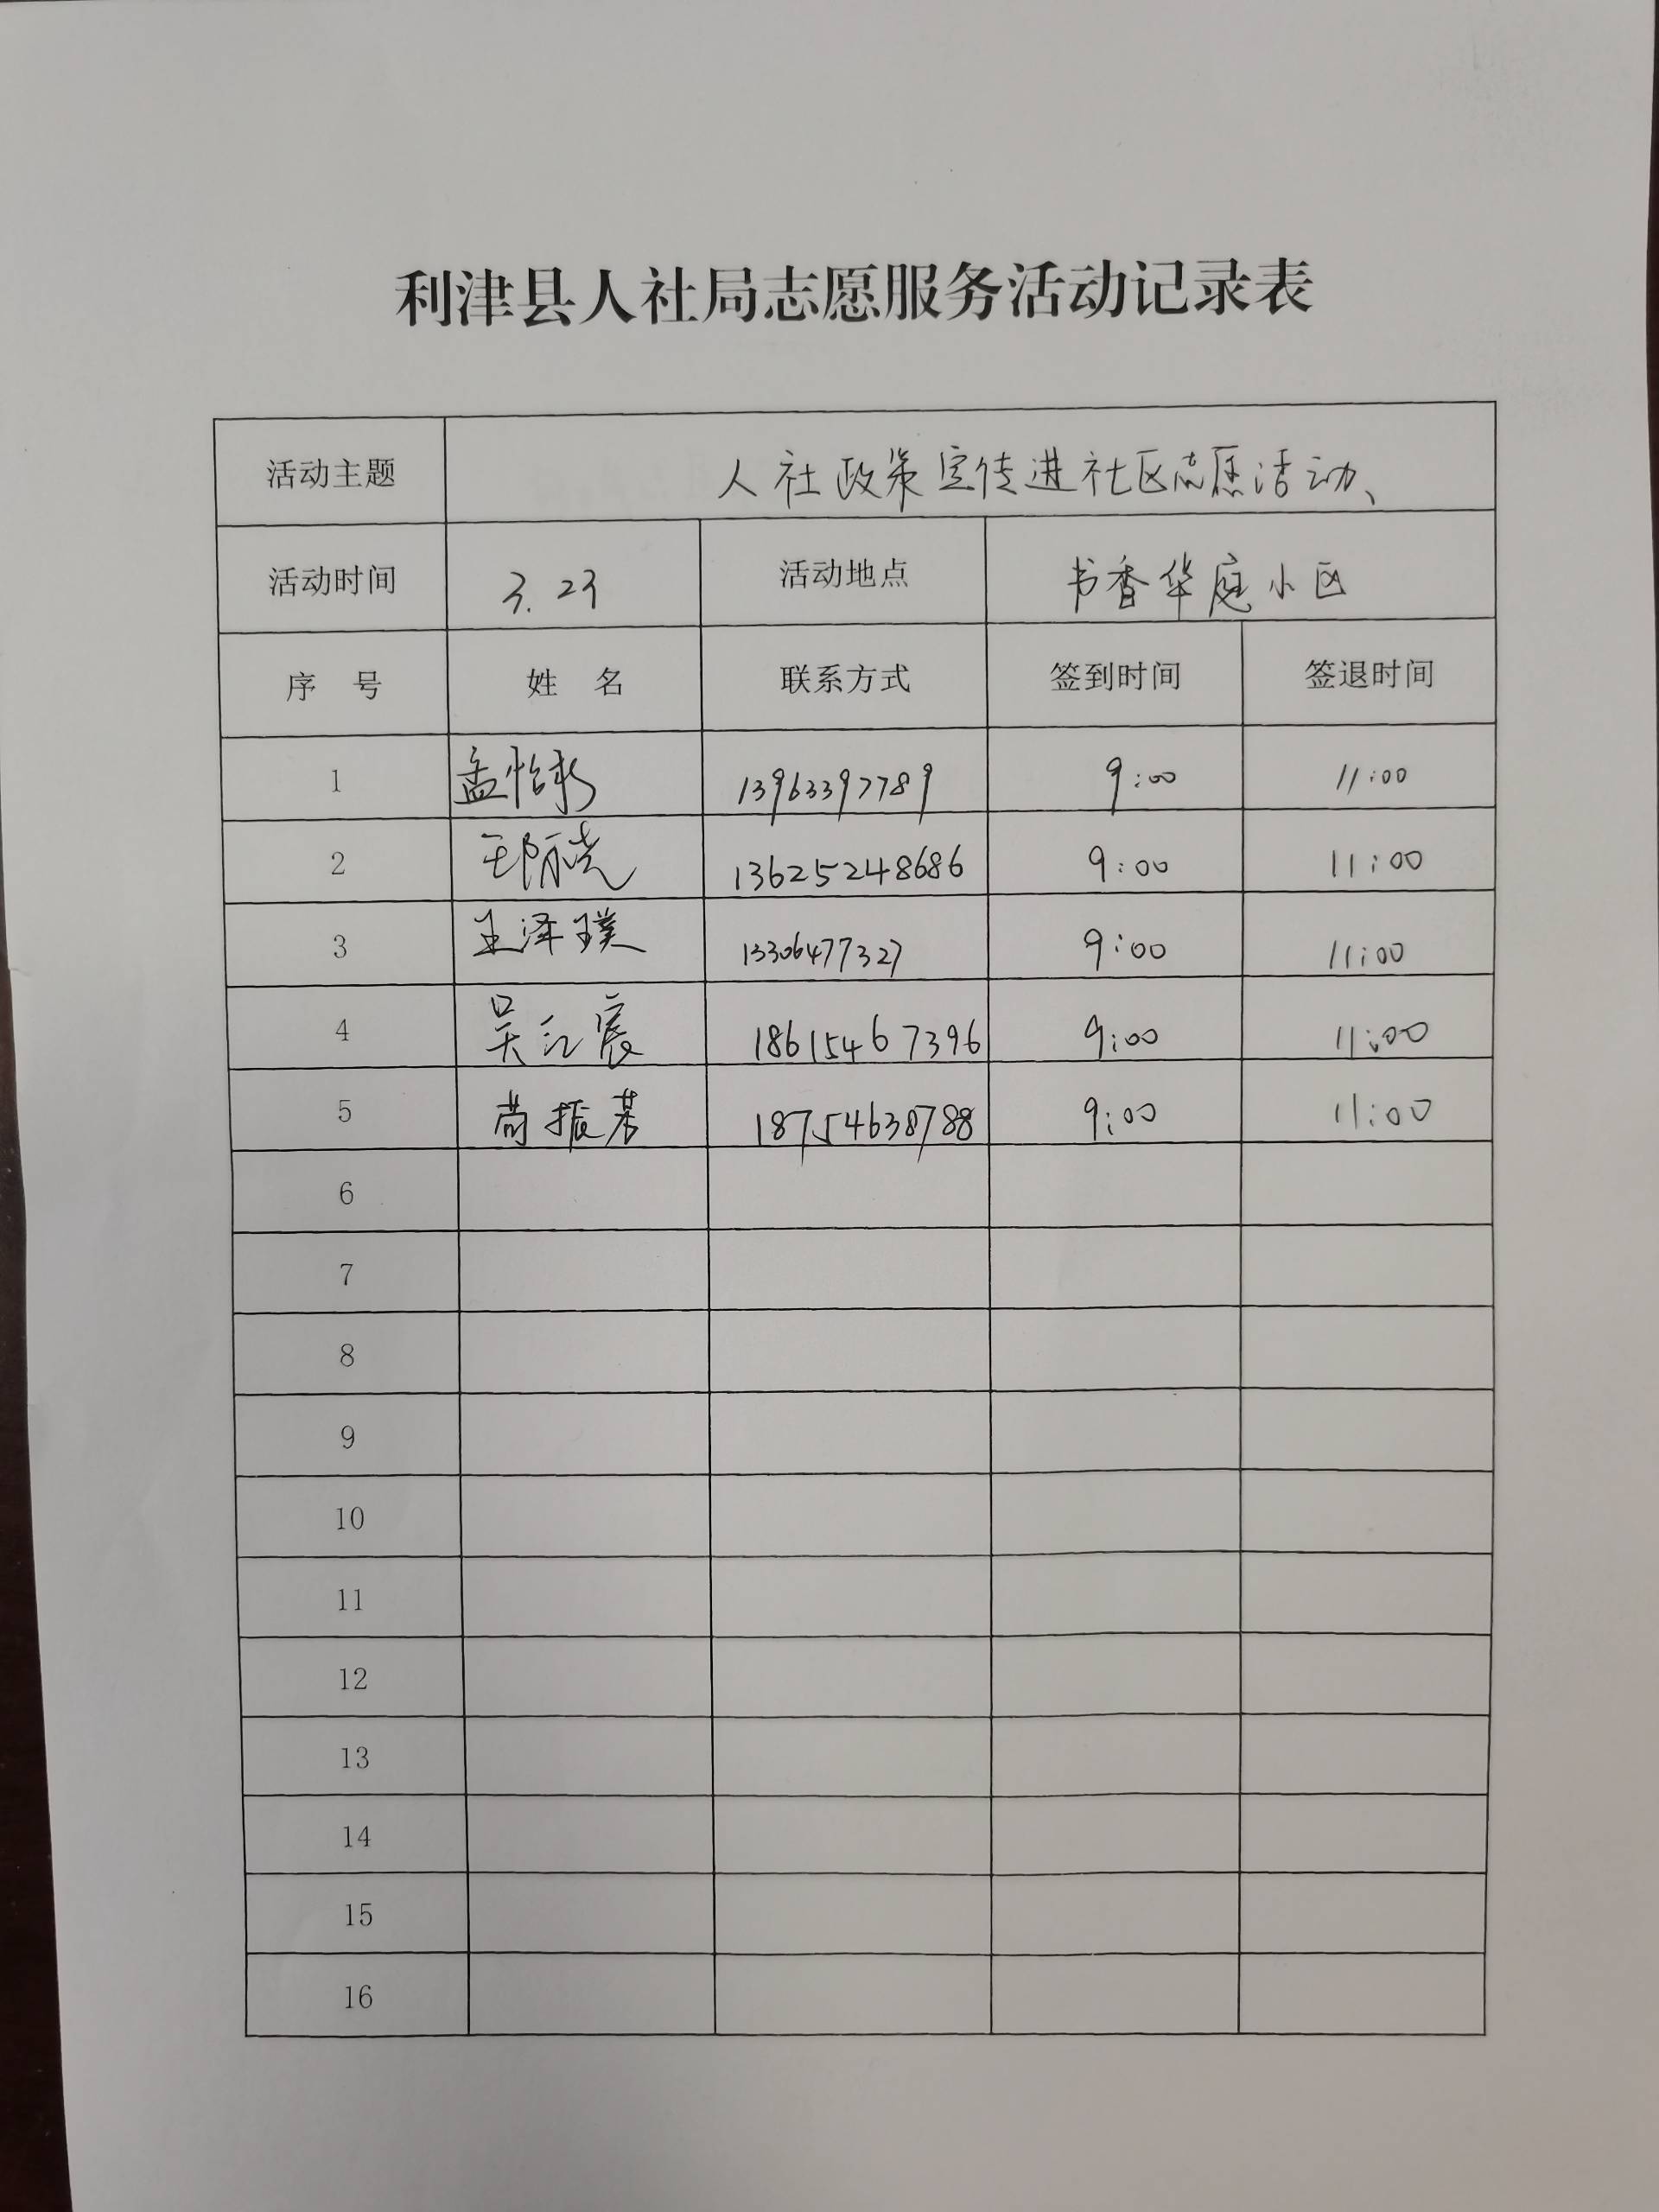 利津县人社局志愿服务活动记录表
活动主题 人社政策宣传进社区志愿活动、
活动时间 3.23 活动地点 书香华庭小区
序 号 姓 名 联系方式 签到时间 签退时间
1 孟怡彤 13963397789 9:00 11:00
2 13625248686 9:00 11:00
3 王泽璞 13306477327 9:00 11:00
4 吴江宸 18615467396 9:00 11:00
5 尚振 18754638788 9:00 11:00
6
7
8
9
10
11
12
13
14
15
16